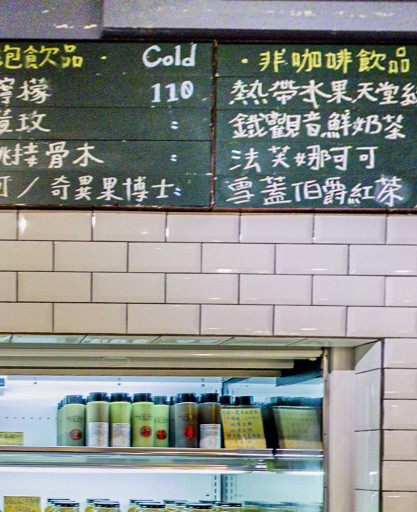 泡飲品 · Cold
檸檬 110
蔓玫 :
桃接骨木 :
可/奇異果博士 :
· 非咖啡飲品
熱帶水果天堂紅
鐵觀音鮮奶茶
法芙娜可可
雪蓋伯爵紅茶